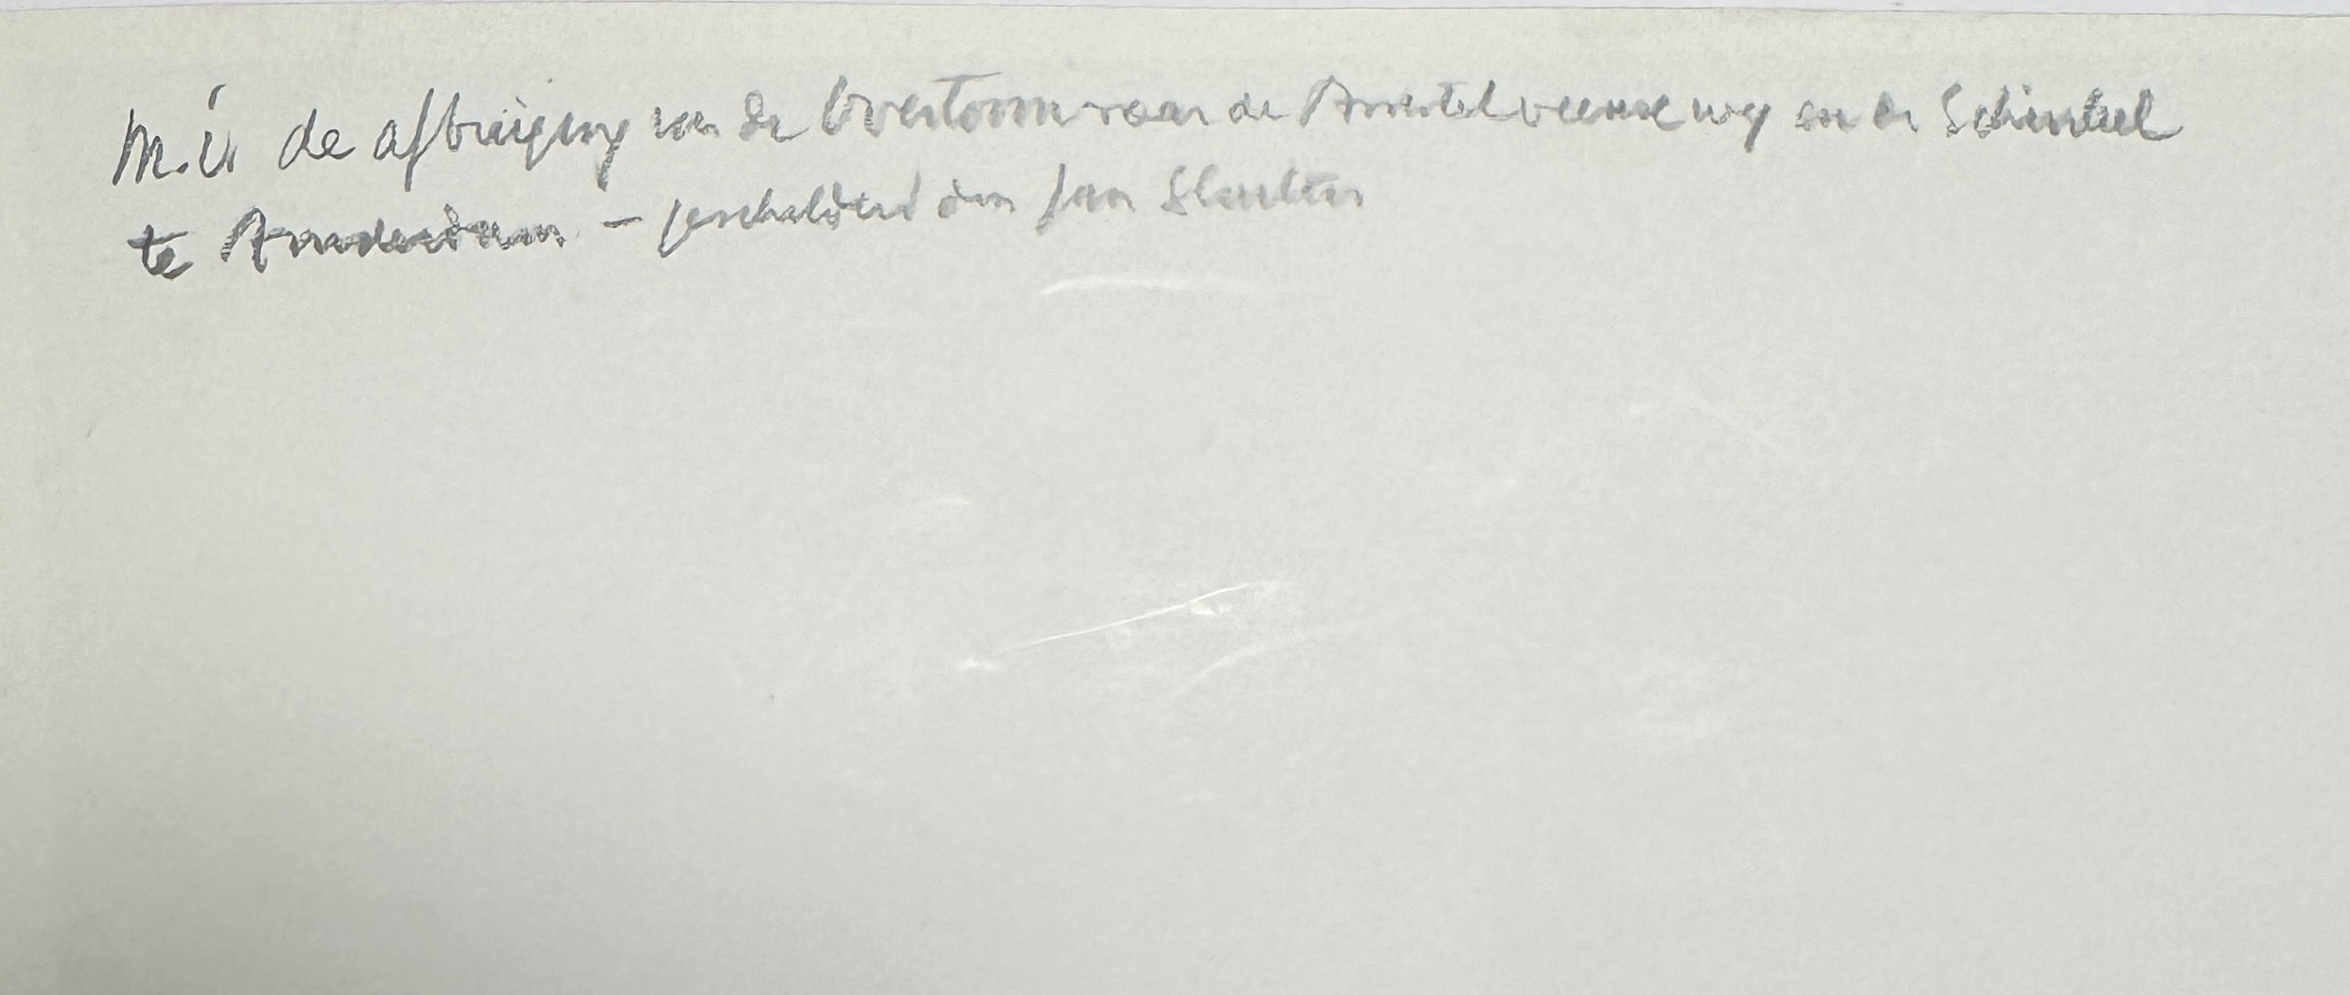 M.i. de afbuiging van de Overtoom naar de Amstelveense weg en de Schinkel
te Amsterdam – geschilderd door Jan Sluiters